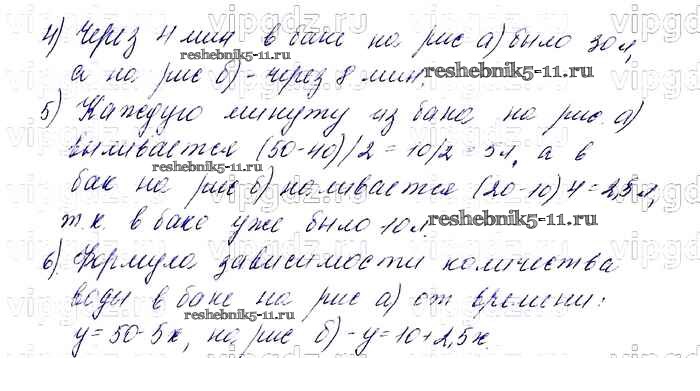 4) Через 4 мин в баке на рис а) было 30 л,
а на рис б) - через 8 мин.
5) Каждую минуту из бака на рис. а)
выливается (50-40)/2=10/2=5л, а в
бак на рис б) наливается (20-10) 4=2,5л,
т.к. в баке уже было 10л.
6) Формула зависимости количества
воды в баке на рис а) от времени:
y=50-5x, на рис б) - y=10+2,5x.
reshebnik5-11.ru
reshebnik5-11.ru
reshebnik5-11.ru
reshebnik5-11.ru
reshebnik5-11.ru
reshebnik5-11.ru